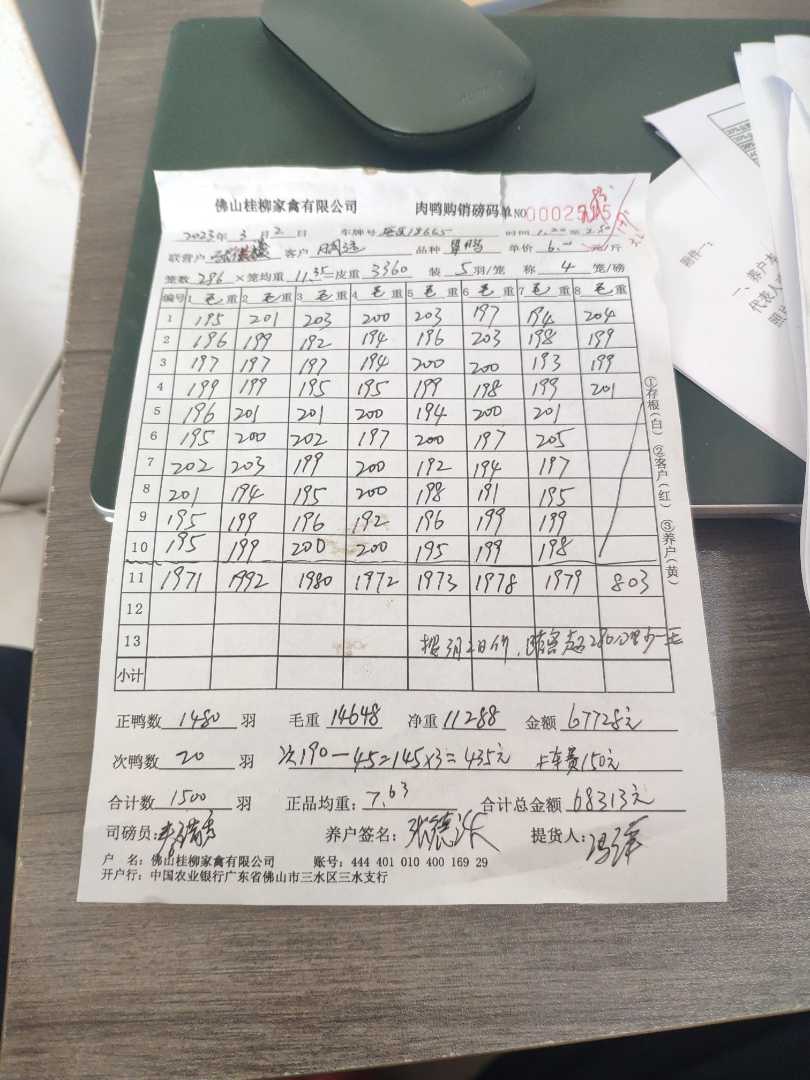 佛山桂柳家禽有限公司 肉鸭购销磅码单 NO 0002
2023年 3 月 2 日 车牌号 18665 时间 1.20 至 2.50
联营户 客户 品种 单价 6.00 元/斤
笼数 296 ×笼均重 11.35 皮重 3360 装 5 羽/笼 称 4 笼/磅
编号 1 毛 重 2 毛 重 3 毛 重 4 毛 重 5 毛 重 6 毛 重 7 毛 重 8 毛 重
1 195 201 203 200 203 197 194 204
2 196 199 192 194 196 203 198 199
3 197 197 197 194 200 200 193 199
4 199 199 195 195 199 198 199 201
5 196 201 201 200 194 200 201
6 195 200 202 197 200 197 205
7 202 203 199 200 192 194 197
8 201 194 195 200 198 191 195
9 195 199 196 192 196 199 199
10 195 199 200 200 195 199 198
11 1971 1992 1980 1972 1973 1978 1979 803
12
13 按3月2日价
小计
正鸭数 1480 羽 毛重 14648 净重 11288 金额 67728元
次鸭数 20 羽 次190-45=145×3=435元 卡车费150元
合计数 1500 羽 正品均重: 7.63 合计总金额 68313元
司磅员: 养户签名: 提货人:
户 名: 佛山桂柳家禽有限公司 账号: 444 401 010 400 169 29
开户行: 中国农业银行广东省佛山市三水区三水支行
①存根(白) ②客户(红) ③养户(黄)
附件一:
一、客户
代表人
照片